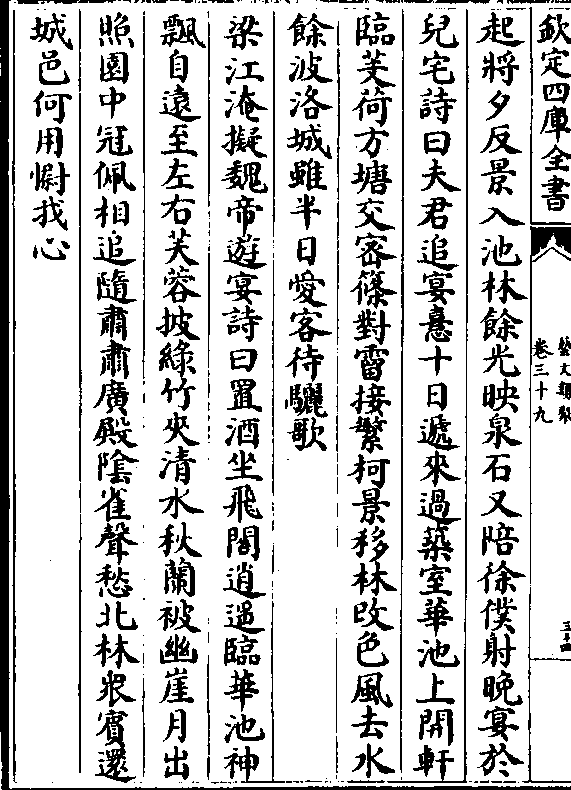 欽定四庫全書
藝文類聚
卷三十九
起將夕反景入池林餘光映泉石又陪徐僕射晚宴於
兒宅詩曰夫君追宴憙十日遞來過築室華池上開軒
臨芰荷方塘交密篠對霤接繁柯景移林改色風去水
餘波洛城雖半日愛客待驪歌
梁江淹擬魏帝遊宴詩曰置酒坐飛閣逍遥臨華池神
飄自遠至左右芙蓉披綠竹夾清水秋蘭被幽崖月出
照園中冠佩相追隨肅肅廣殿陰雀聲愁北林衆賓還
城邑何用慰我心